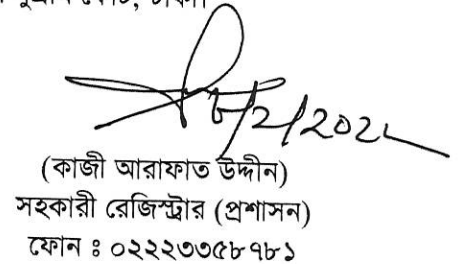 সুপ্রীম কোর্ট, ঢাকা।
(কাজী আরাফাত উদ্দীন)
সহকারী রেজিস্ট্রার (প্রশাসন)
ফোন ঃ ০২২২৩৩৫৮৭৮১